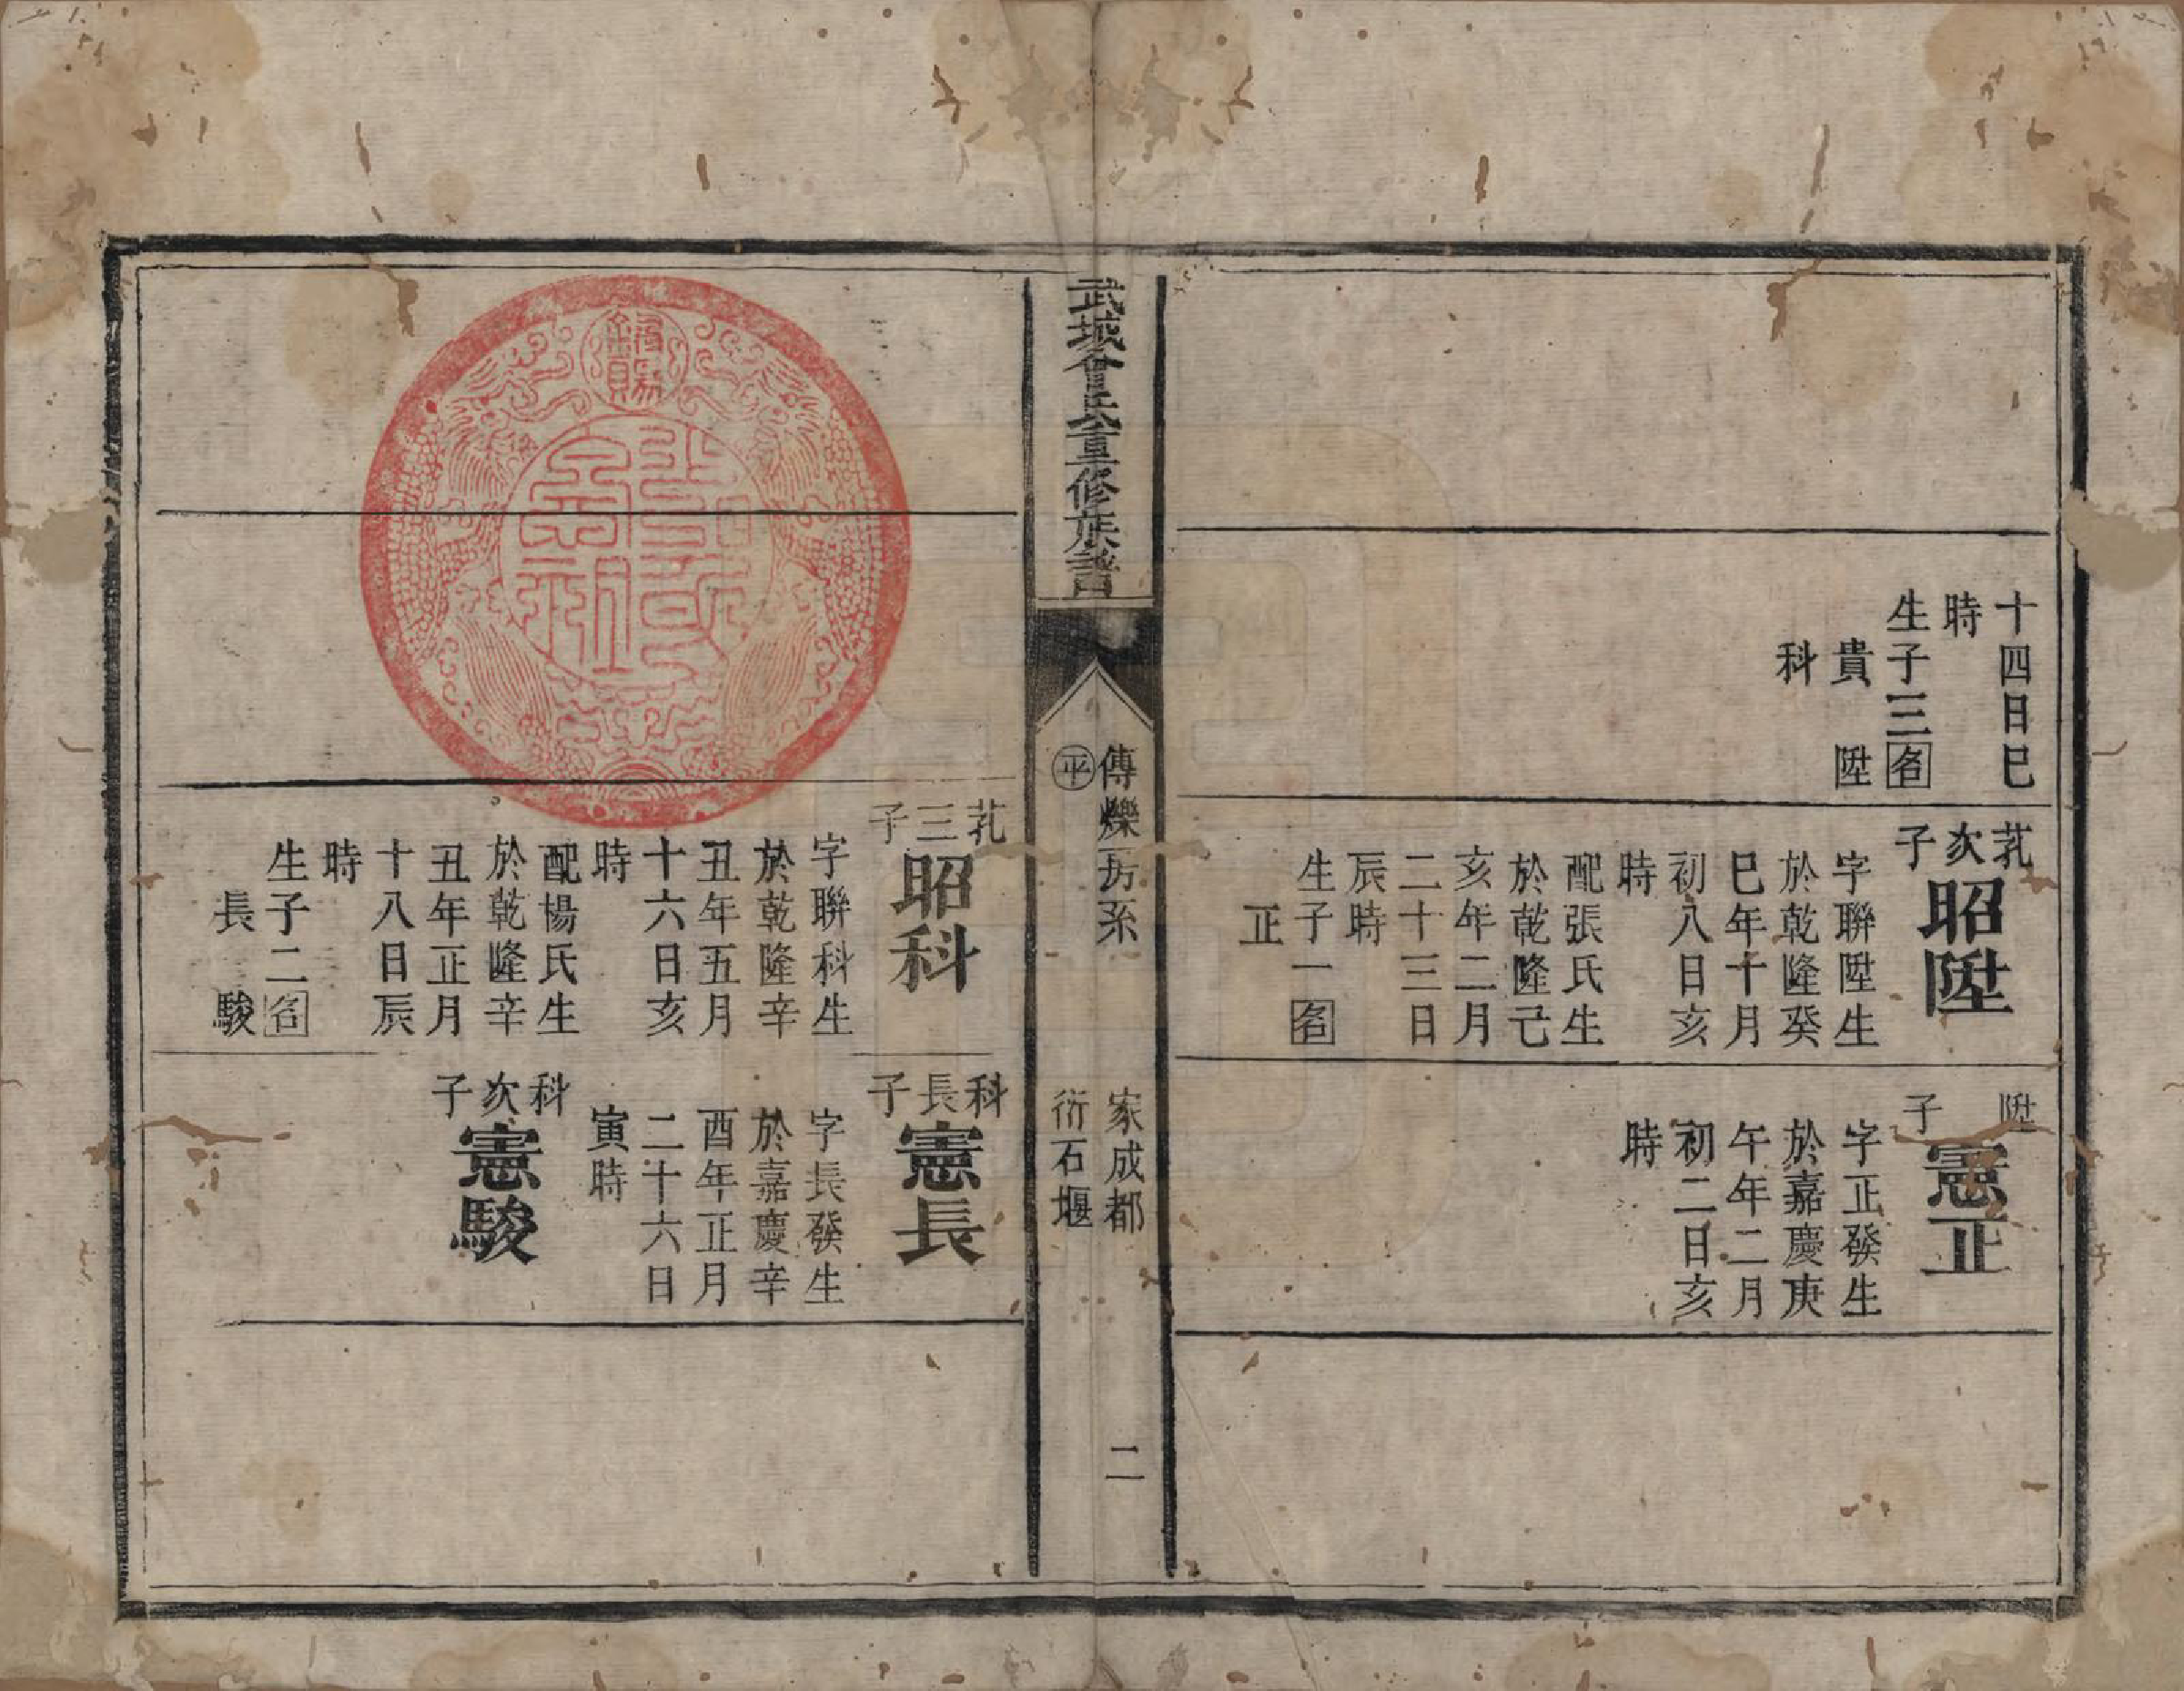 十四日巳
時
生子三名
貴 陞
科
芤次子
昭陞
字聯陞生
於乾隆癸
巳年十月
初八日亥
時
配張氏生
於乾隆己
亥年二月
二十三日
辰時
生子一名
正
陞子
憲正
字正發生
於嘉慶庚
午年二月
初二日亥
時
武城曾氏重修族譜
傳爍房系
平
家成都
衍石堰
二
芤三子
昭科
字聯科生
於乾隆辛
丑年五月
十六日亥
時
配楊氏生
於乾隆辛
丑年正月
十八日辰
時
生子二名
長 駿
科長子
憲長
字長發生
於嘉慶辛
酉年正月
二十六日
寅時
科次子
憲駿